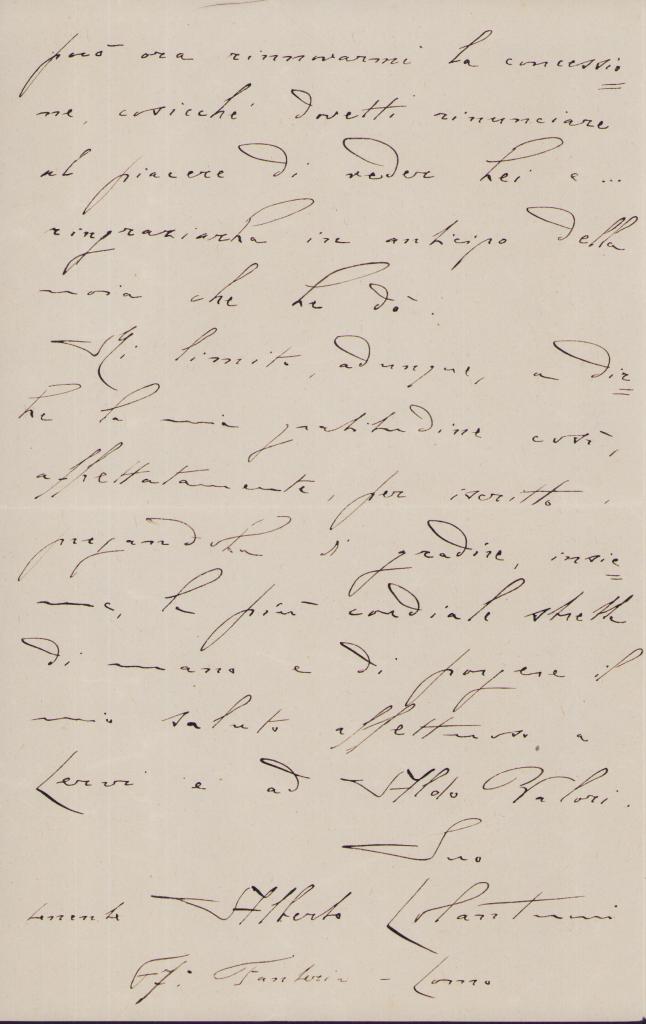 può ora rinnovarmi la concessio=
ne, cosicché dovetti rinunciare
al piacere di veder Lei e ...
ringraziarLa in anticipo della
noia che Le dò.
Mi limito, adunque, a dir=
Le la mia gratitudine così,
affrettatamente, per iscritto,
pregandoLa di gradire, insie=
me, la più cordiale stretta
di mano e di porgere il
mio saluto affettuoso a
e ad Aldo Valori.
Suo
tenente Alberto Colantuoni
67° Fanteria - Como